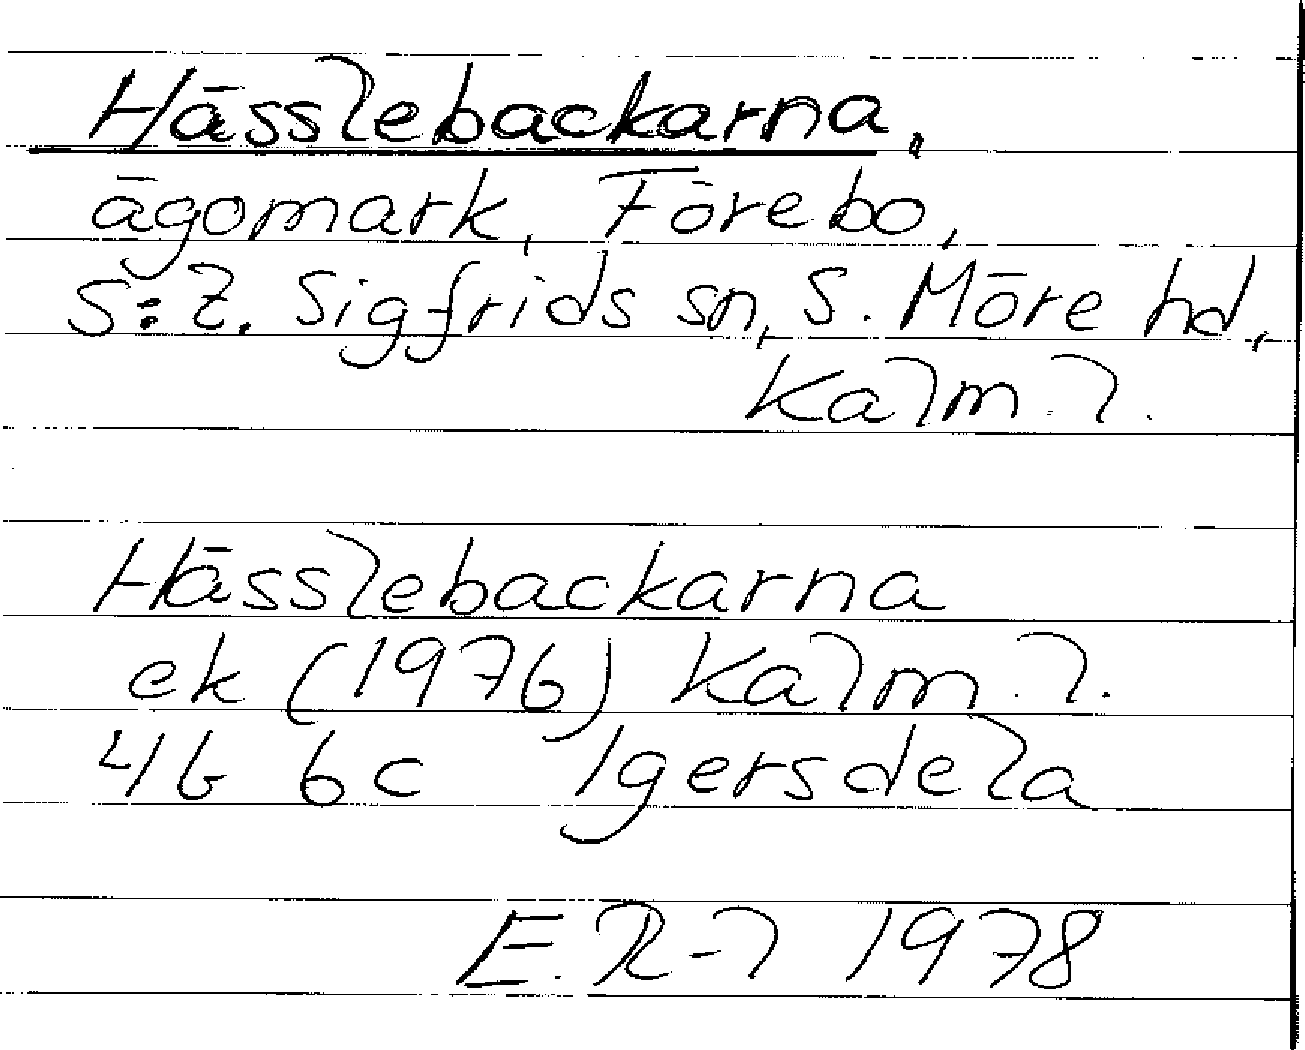 Hässlebackarna,
ägomark, Förebo,
S:t. Sigfrids sn, S. Möre hd,
Kalm. l.
Hässlebackarna
ek (1976) Kalm. l.
4G 6c Igersdela
E. R-l 1978